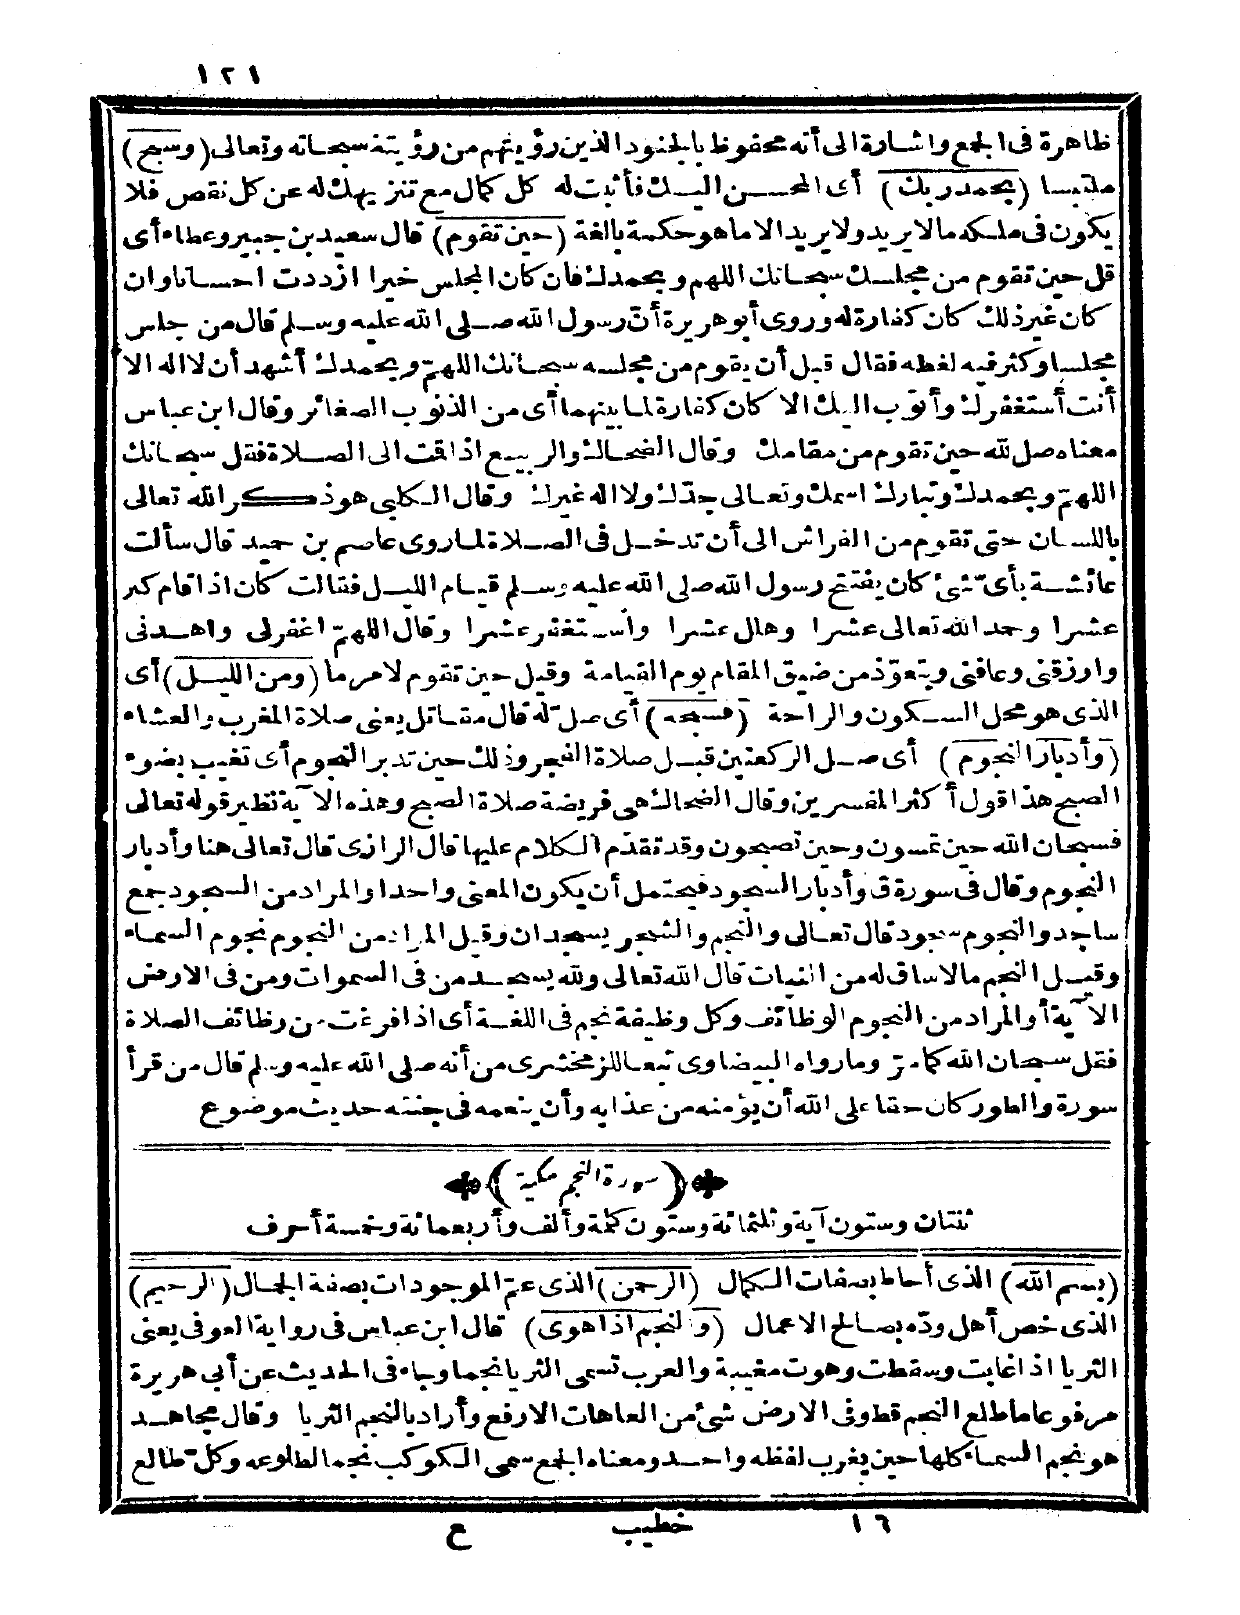 ١٢١
ظاهرة فى الجمع واشارة الى أنه محفوظ بالجنود الذين رؤيتهم من رؤيته سبحانه وتعالى (وسبح)
ملتبسا (بحمد ربك) أى المحسن اليك فأثبت له كل كمال مع تنزيهك له عن كل نقص فلا
يكون فى ملكه مالا يريد ولا يريد الا ما هو حكمة بالغة (حين تقوم) قال سعيد بن جبير وعطاء أى
قل حين تقوم من مجلسك سبحانك اللهم وبحمدك فان كان المجلس خيرا ازددت احسانا وان
كان غير ذلك كان كفارة له وروى أبو هريرة أن رسول الله صلى الله عليه وسلم قال من جلس
مجلسا وكثر فيه لغطه فقال قبل أن يقوم من مجلسه سبحانك اللهم وبحمدك أشهد أن لا اله الا
أنت أستغفرك وأتوب اليك الا كان كفارة لما بينهما أى من الذنوب الصغائر وقال ابن عباس
معناه صل لله حين تقوم من مقامك وقال الضحاك والربيع اذا قمت الى الصلاة فقل سبحانك
اللهم وبحمدك وتبارك اسمك وتعالى جدّك ولا اله غيرك وقال الكلبى هو ذكر الله تعالى
باللسان حتى تقوم من الفراش الى أن تدخل فى الصلاة لما روى عاصم بن حميد قال سألت
عائشة بأىّ شئ كان يفتتح رسول الله صلى الله عليه وسلم قيام الليل فقالت كان اذا قام كبر
عشرا وحمد الله تعالى عشرا وهلل عشرا واستغفر عشرا وقال اللهمّ اغفرلى واهدنى
وارزقنى وعافنى ويتعوّذ من ضيق المقام يوم القيامة وقيل حين تقوم لامر ما (ومن الليل) أى
الذى هو محل السكون والراحة (فسبحه) أى صل له قال مقاتل يعنى صلاة المغرب والعشاء
(وأدبار النجوم) أى صل الركعتين قبل صلاة الفجر وذلك حين تدبر النجوم أى تغيب بضوء
الصبح هذا قول أكثر المفسرين وقال الضحاك هى فريضة صلاة الصبح وهذه الآية نظير قوله تعالى
فسبحان الله حين تمسون وحين تصبحون وقد تقدّم الكلام عليها قال الرازى قال تعالى هنا وأدبار
النجوم وقال فى سورة ق وأدبار السجود فيحتمل أن يكون المعنى واحدا والمراد من السجود جمع
ساجد والنجوم سجود قال تعالى والنجم والشجر يسجدان وقيل المراد من النجوم نجوم السماء
وقيل النجم مالا ساق له من النبات قال الله تعالى ولله يسجد من فى السموات ومن فى الارض
الآية أو المراد من النجوم الوظائف وكل وظيفة نجم فى اللغة أى اذا فرغت من وظائف الصلاة
فقل سبحان الله كما مرّ وما رواه البيضاوى تبعا للزمخشرى من أنه صلى الله عليه وسلم قال من قرأ
سورة والطور كان حقا على الله أن يؤمنه من عذابه وأن ينعمه فى جنته حديث موضوع
(سورة النجم مكية)
ثنتان وستون آية وثلثمائة وستون كلمة وألف وأربعمائة وخمسة أحرف
(بسم الله) الذى أحاط بصفات الكمال (الرحمن) الذى عمّ الموجودات بصفة الجمال (الرحيم)
الذى خص أهل ودّه بصالح الاعمال (والنجم اذا هوى) قال ابن عباس فى رواية العوفى يعنى
الثريا اذا غابت وسقطت وهوت مغيبة والعرب تسمى الثريا نجما وجاء فى الحديث عن أبى هريرة
مرفوعا ما طلع النجم قط وفى الارض شئ من العاهات الا رفع وأراد بالنجم الثريا وقال مجاهد
هو نجم السماء كلها حين يغرب لفظه واحد ومعناه الجمع سمى الكوكب نجما لطلوعه وكل طالع
١٦ خطيب ع